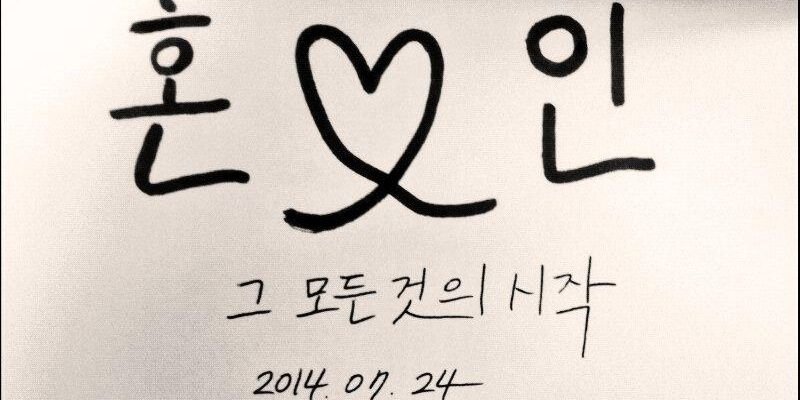 혼 인
그 모든것의 시작
2014. 07. 24